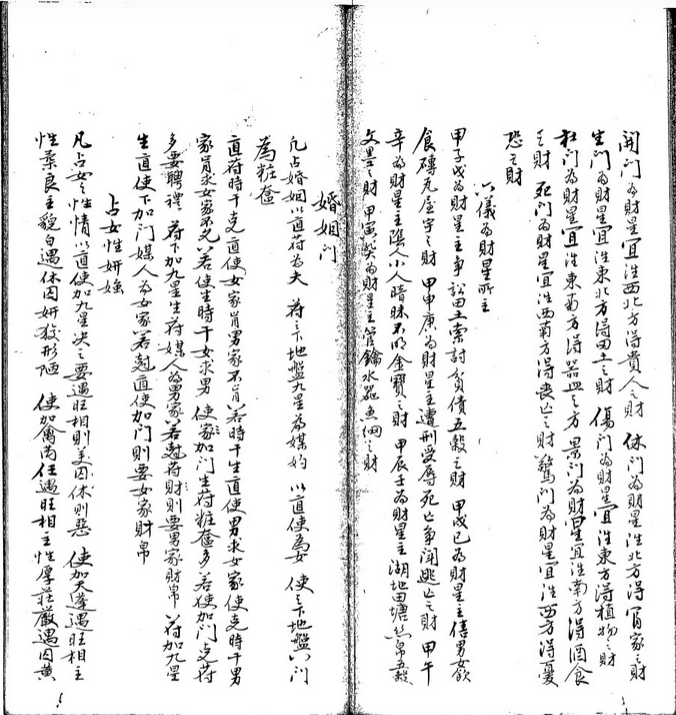 開门為財星宜往西北方得貴人之財 休门為財星往北方得官家之財
生门為財星宜往東北方得田土之財 傷门為財星宜往東方得植物之財
杜门為財星宜往東南方得器皿之方 景门為財星宜往南方得酒食
之財 死门為財星宜往西南方得喪亡之財 驚门為財星宜往西方得憂
恐之財
六儀為財星所主
甲子戊為財星主争訟田土索討負債五穀之財 甲戌己為財星主僖男女飲
食磚瓦屋宇之財 甲申庚為財星主遭刑受辱死亡争闘逃亡之財 甲午
辛為財星主陰人小人暗昧不明金寶之財 甲辰壬為財星主湖地田塘絲帛五穀
文墨之財 甲寅癸為財星主管鑰水器魚網之財
婚姻门
凡占婚姻以直符為夫 符之下地盤九星為媒妁 以直使為女 使之下地盤八门
為粧奩
直符時干克直使女家肯男家不肯若時干生直使男求女家使克時干男
家肯求女家不允若使生時干女求男 使家加门生符粧奩多若使加门克符
多要聘禮 符下加九星生符媒人為男家若尅符財則要男家財帛 符加九星
生直使下加门媒人為女家若尅直使加门則要女家財帛
占女性妍媸
凡占女之性情以直使加九星决之要遇旺相則美囚休則惡 使加天蓬遇旺相主
性柔良主貌白遇休囚奸狡形陋 使加禽芮任遇旺相主性厚莊嚴遇囚黄